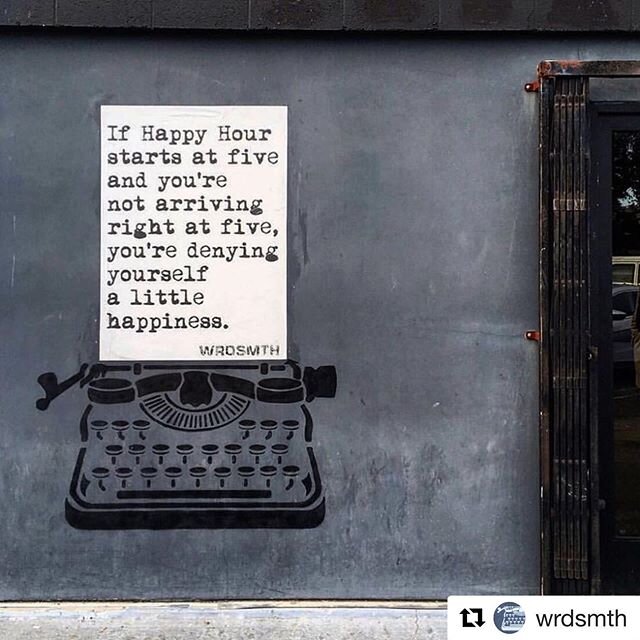 If Happy Hour
starts at five
and you're
not arriving
right at five,
you're denying
yourself
a little
happiness.
WRDSMTH
wrdsmth